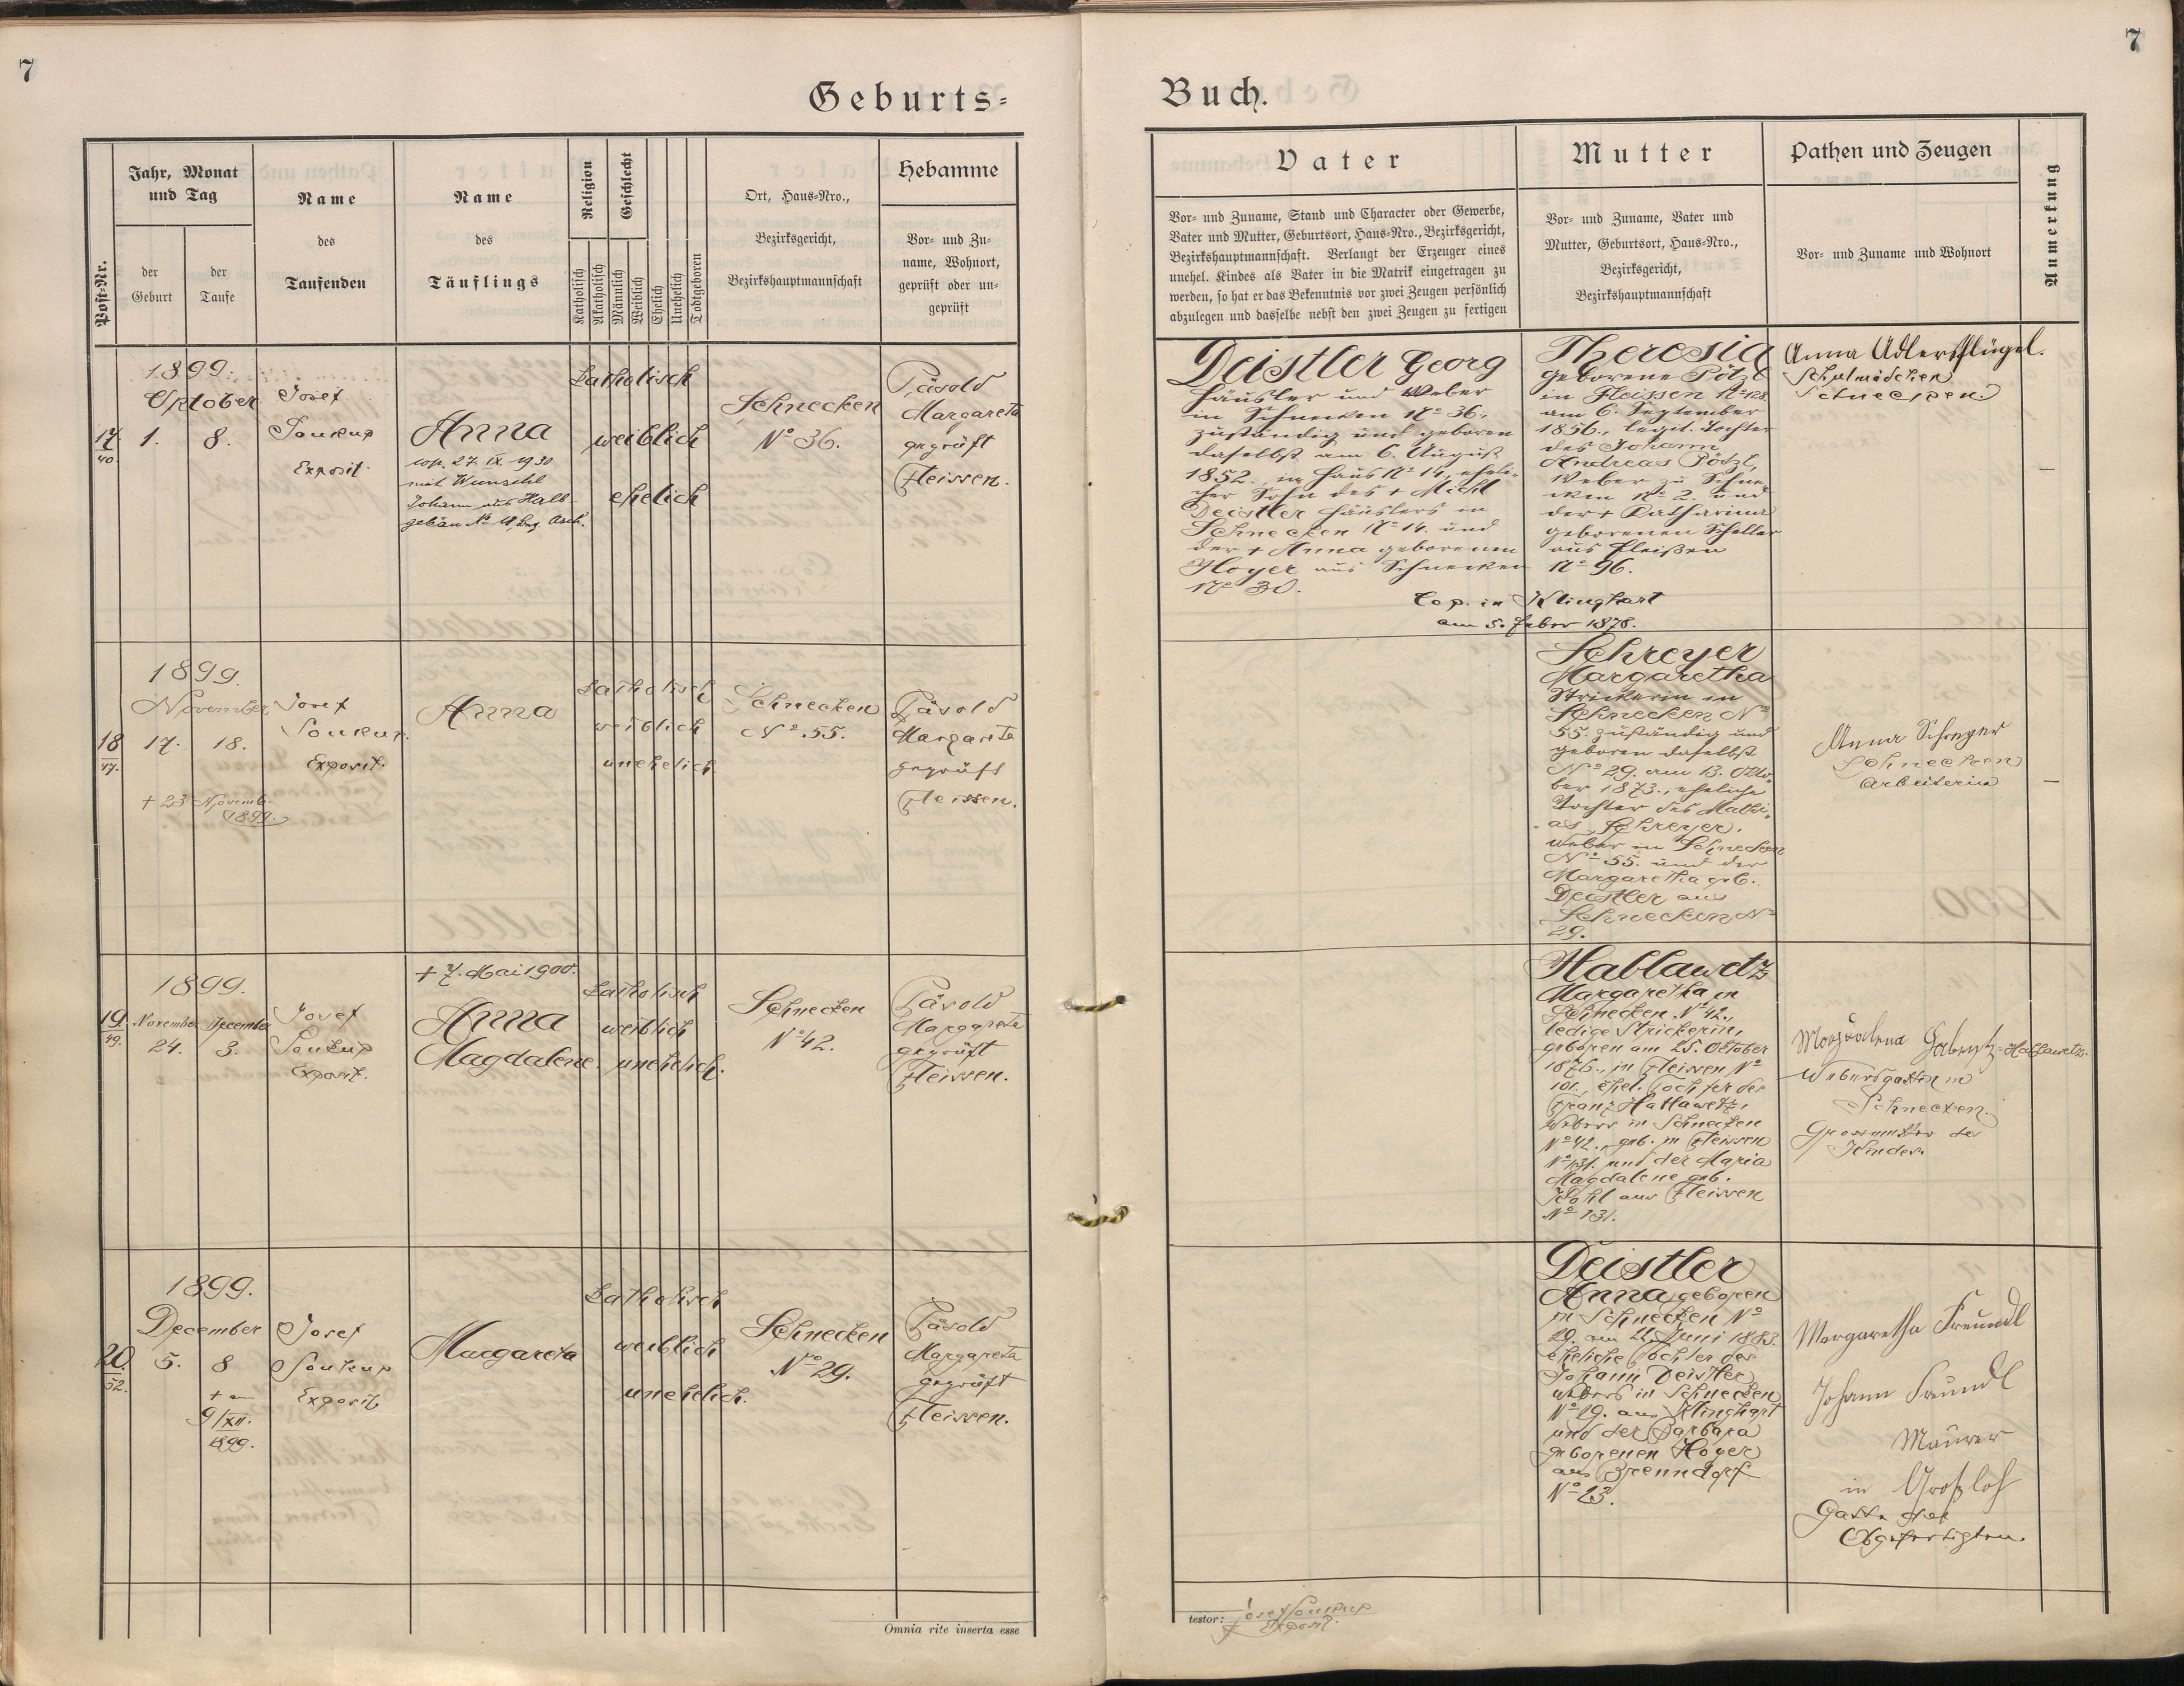 7
7
Geburts=
Buch.
Post-Nr.
Jahr, Monat
und Tag
der
Geburt
der
Taufe
Name
des
Taufenden
Name
des
Täuflings
Religion
Geschlecht
Katholisch
Akatholisch
Männlich
Weiblich
Ehelich
Unehelich
Todtgeboren
Ort, Haus-Nro.,
Bezirksgericht,
Bezirkshauptmannschaft
Hebamme
Vor- und Zu-
name, Wohnort,
geprüft oder un-
geprüft
Vater
Vor- und Zuname, Stand und Character oder Gewerbe,
Vater und Mutter, Geburtsort, Haus-Nro., Bezirksgericht,
Bezirkshauptmannschaft. Verlangt der Erzeuger eines
unehel. Kindes als Vater in die Matrik eingetragen zu
werden, so hat er das Bekenntnis vor zwei Zeugen persönlich
abzulegen und dasselbe nebst den zwei Zeugen zu fertigen
Mutter
Vor- und Zuname, Vater und
Mutter, Geburtsort, Haus-Nro.,
Bezirksgericht,
Bezirkshauptmannschaft
Pathen und Zeugen
Vor- und Zuname und Wohnort
Anmerkung
17
40.
1899.
Oktober
1. 8.
Josef
Soukup
Exposit.
Anna
cop. 27. IX. 1930
mit Wunschl
Johann aus Halb-
gebäu No 18, Bez. Asch.
katholisch
weiblich
ehelich
Schnecken
No 36.
Päsold
Margareta
geprüft
Fleissen.
Deistler Georg
Häusler und Weber
in Schnecken No 36.,
zuständig und geboren
daselbst am 6. August
1852., in Haus No 14., eheli-
cher Sohn des + Michl
Deistler Häuslers in
Schnecken No 14. und
der + Anna geborenen
Hoyer aus Schnecken
No 30.
Theresia
geborene Pötzl
in Fleissen No 128.
am 6. September
1856., legit. Tochter
des Johann
Andreas Pötzl,
Weber zu Schne-
cken No 2. und
der + Katharina
geborenen Scheller
aus Fleißen
No 96.
Cop. in Klinghart
am 5. Feber 1878.
Anna Adlersflügel.
Schulmädchen
Schnecken.
—
18
47.
1899.
November
17. 18.
+ 23 Novemb.
1899.
Josef
Soukup.
Exposit.
Anna
katholisch
weiblich
unehelich
Schnecken
No 55.
Päsold
Margareta
geprüft
Fleissen.
Schreyer
Margaretha
Strickerin in
Schnecken No
55. zuständig und
geboren daselbst
No 29. am 13. Okto-
ber 1873., eheliche
Tochter des Mathi-
as Schreyer,
Weber in Schnecken
No 55. und der
Margaretha geb.
Deistler aus
Schnecken No
29.
Anna Schreyer
Schnecken
Arbeiterin
—
19
49.
1899.
November December
24. 3.
Josef
Soukup
Exposit.
+ 7. Mai 1900.
Anna
Magdalene.
katholisch
weiblich
unehelich.
Schnecken
No 42.
Päsold
Margareta
geprüft
Fleissen.
Hablawetz
Margaretha in
Schnecken No 42.,
ledige Strickerin,
geboren am 25. October
1876., in Fleissen No
101., ehel. Tochter des
Franz Hablawetz,
Webers in Schnecken
No 42., geb. in Fleissen
No 131. und der Maria
Magdalene geb.
Wahl aus Fleissen
No 131.
Magdalena Hablawetz.
Webersgattin in
Schnecken.
Grossmutter des
Kindes.
20
52.
1899.
December
5. 8
+ am
9/XII.
1899.
Josef
Soukup
Exposit
Margareta
katholisch
weiblich
unehelich.
Schnecken
No 29.
Päsold
Margareta
geprüft
Fleissen.
Deistler
Anna geboren
in Schnecken No
29. am 21. Juni 1883.
eheliche Tochter des
Johann Deistler
Webers in Schnecken
No 29. aus Klinghart
und der Barbara
geborenen Hoyer
aus Frenndorf
No 23.
Margaretha Freundl
Johann Freundl
Maurer
in Großloh
Gatte der
Obgefertigten.
Omnia rite inserta esse
testor: Josef Soukup
Exposit.